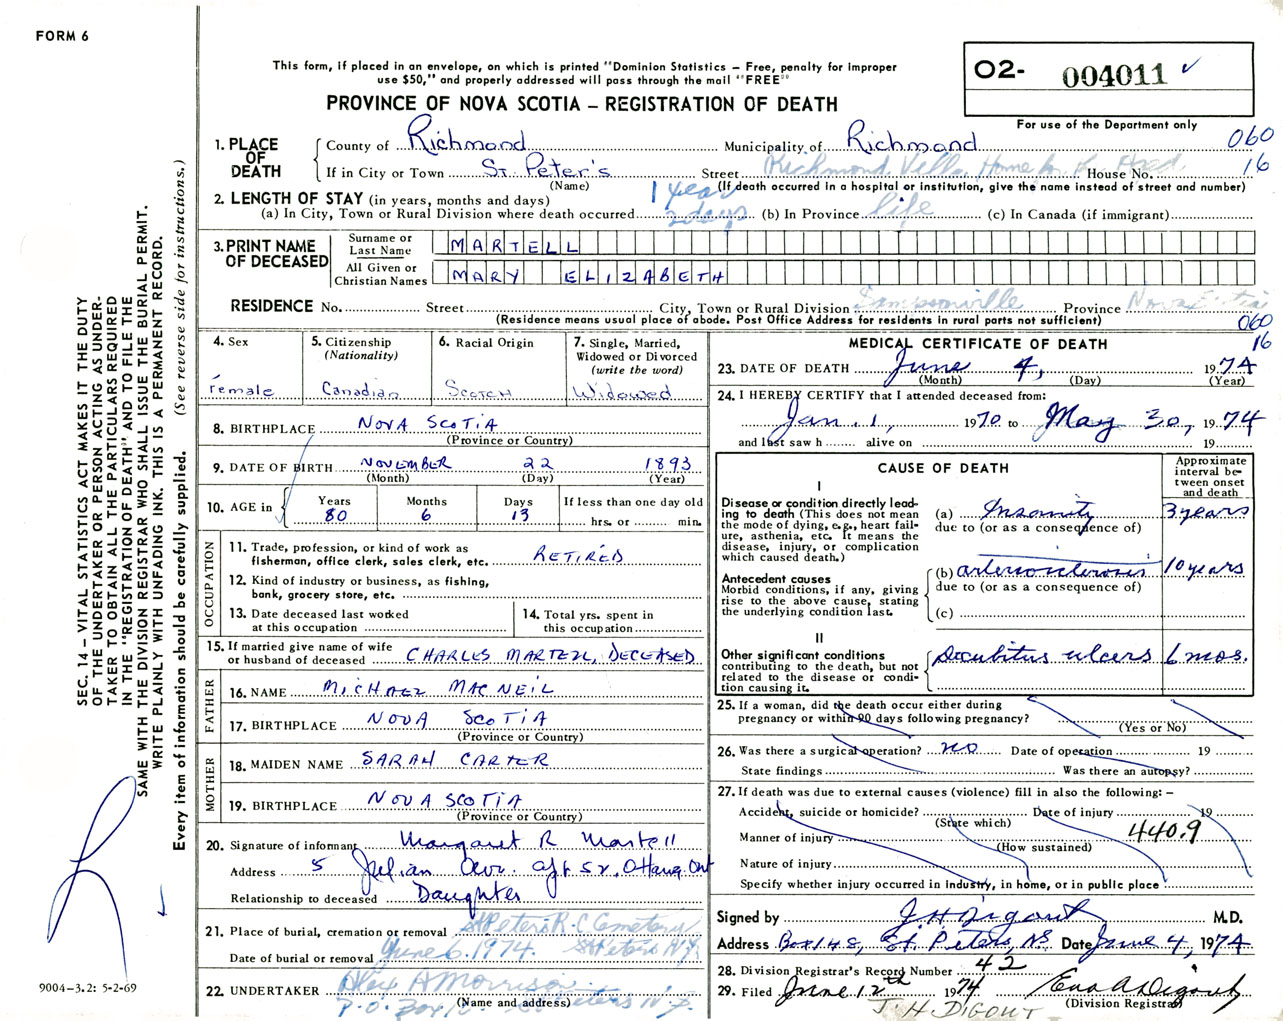 FORM 6
This form, if placed in an envelope, on which is printed "Dominion Statistics – Free, penalty for improper
use $50," and properly addressed will pass through the mail "FREE"
O2- 004011
PROVINCE OF NOVA SCOTIA – REGISTRATION OF DEATH
For use of the Department only
060
16
1. PLACE OF DEATH
County of Richmond Municipality of Richmond
If in City or Town St. Peter's Street Richmond Villa Home House No.
(Name) (If death occurred in a hospital or institution, give the name instead of street and number)
2. LENGTH OF STAY (in years, months and days) 1 year
(a) In City, Town or Rural Division where death occurred 2 days (b) In Province life (c) In Canada (if immigrant)
3. PRINT NAME OF DECEASED
Surname or Last Name MARTELL
All Given or Christian Names MARY ELIZABETH
RESIDENCE No. Street City, Town or Rural Division Sampsonville Province Nova Scotia
(Residence means usual place of abode. Post Office Address for residents in rural parts not sufficient)
060
16
4. Sex
Female
5. Citizenship
(Nationality)
Canadian
6. Racial Origin
Scotch
7. Single, Married,
Widowed or Divorced
(write the word)
Widowed
8. BIRTHPLACE NOVA SCOTIA
(Province or Country)
9. DATE OF BIRTH NOVEMBER 22 1893
(Month) (Day) (Year)
10. AGE in
Years Months Days If less than one day old
80 6 13 hrs. or min.
OCCUPATION
11. Trade, profession, or kind of work as
fisherman, office clerk, sales clerk, etc. RETIRED
12. Kind of industry or business, as fishing,
bank, grocery store, etc.
13. Date deceased last worked
at this occupation
14. Total yrs. spent in
this occupation
15. If married give name of wife
or husband of deceased CHARLES MARTELL, DECEASED
FATHER
16. NAME MICHAEL MACNEIL
17. BIRTHPLACE NOVA SCOTIA
(Province or Country)
MOTHER
18. MAIDEN NAME SARAH CARTER
19. BIRTHPLACE NOVA SCOTIA
(Province or Country)
20. Signature of informant Margaret R Martell
Address 5 Julian Ave. Apt 52, Ottawa Ont
Relationship to deceased Daughter
21. Place of burial, cremation or removal St Peters R.C. Cemetery
Date of burial or removal June 6, 1974. St Peters N.S.
22. UNDERTAKER Alex A Morrison
(Name and address) P.O. Box St Peters N.S.
MEDICAL CERTIFICATE OF DEATH
23. DATE OF DEATH June 4, 1974
(Month) (Day) (Year)
24. I HEREBY CERTIFY that I attended deceased from:
Jan. 1, 1970 to May 30, 1974
and last saw h alive on 19
CAUSE OF DEATH
Approximate
interval be-
tween onset
and death
I
Disease or condition directly lead-
ing to death (This does not mean
the mode of dying, e.g., heart fail-
ure, asthenia, etc. It means the
disease, injury, or complication
which caused death.)
(a) Insanity 3 years
due to (or as a consequence of)
Antecedent causes
Morbid conditions, if any, giving
rise to the above cause, stating
the underlying condition last.
(b) arteriosclerosis 10 years
due to (or as a consequence of)
(c)
II
Other significant conditions
contributing to the death, but not
related to the disease or condi-
tion causing it.
Decubitus ulcers 6 mos.
25. If a woman, did the death occur either during
pregnancy or within 90 days following pregnancy?
(Yes or No)
26. Was there a surgical operation? no Date of operation 19
State findings Was there an autopsy?
27. If death was due to external causes (violence) fill in also the following: –
Accident, suicide or homicide? Date of injury 19
(State which)
Manner of injury 440.9
(How sustained)
Nature of injury
Specify whether injury occurred in industry, in home, or in public place
Signed by J.H Digout M.D.
Address Box 148, St. Peters, NS Date June 4, 1974
28. Division Registrar's Record Number 42
29. Filed June 12th 1974 Eva A Digout
(Division Registrar)
J H DIGOUT
SEC. 14 – VITAL STATISTICS ACT MAKES IT THE DUTY
OF THE UNDERTAKER OR PERSON ACTING AS UNDER-
TAKER TO OBTAIN ALL THE PARTICULARS REQUIRED
IN THE "REGISTRATION OF DEATH" AND TO FILE THE
SAME WITH THE DIVISION REGISTRAR WHO SHALL ISSUE THE BURIAL PERMIT.
WRITE PLAINLY WITH UNFADING INK. THIS IS A PERMANENT RECORD.
Every item of information should be carefully supplied. (See reverse side for instructions.)
9004-3.2: 5-2-69